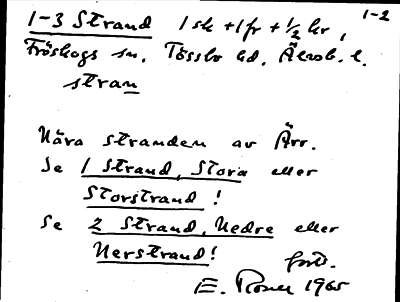 1-2
1-3 Strand 1 sk + 1 fr + 1/2 kr,
Fröskogs sn, Tössbo hd, Älvsb. l.
stran
Nära stranden av Ärr.
Se 1 Strand, Stora eller
Storstrand!
Se 2 Strand, Nedre eller
Nerstrand! forts.
E. 1965